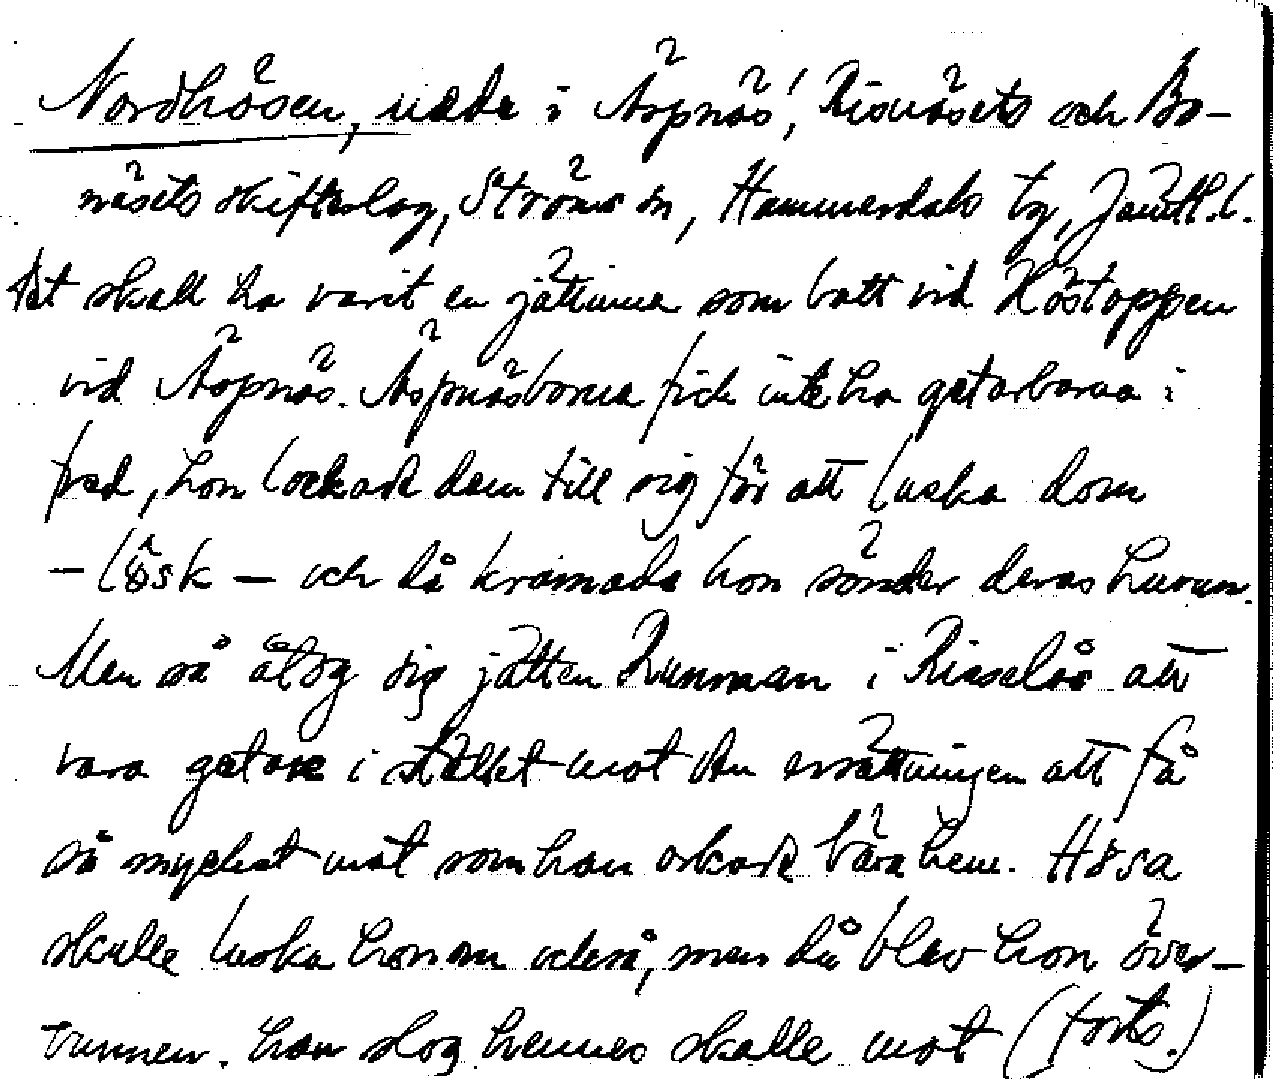 Nordhösen, udde i Äspnäs, Risnäsets och Bo-
näsets skifteslag, Ströms sn, Hammerdals tg, Jämtl.l.
Det skall ha varit en jättinna som bott vid Höstoppen
vid Äspnäs. Äspnäsborna fick inte ha getarbarna i
fred, hon lockade dem till sig för att luska dom
– lösk – och då kramade hon sönder deras huvun.
Men så åtog sig jätten Runman i Risselås att
vara getare i stället mot den ersättningen att få
så mycket mat som han orkade bära hem. Hösa
skulle luska honom också, men då blev hon över-
vunnen. Han slog hennes skalle mot (forts.)